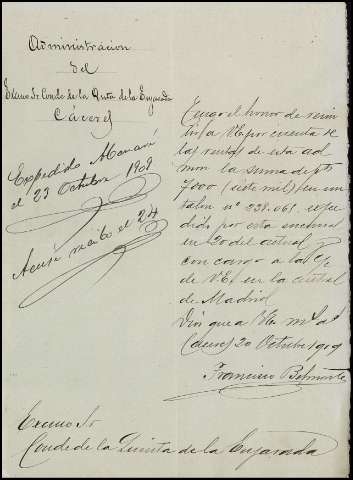 Administracion
del
Excmo Sr Conde de la Quinta de la Enjarada
Cáceres
Expedido
el 23 Octubre 1909
Acusé recibo el 24
Tengo el honor de remi
tir a VE por cuenta de
las rentas de esta ad
mon la suma de pts
7000 (siete mil) en un
talon nº 238.061, espe
dido por esta sucursal
en 20 del actual
con cargo a la c/c
de V.E. en la central
de Madrid
Dios gue a V.E. ms as
Caceres 20 Octubre 1909
Francisco Belmonte
Excmo Sr
Conde de la Quinta de la Enjarada